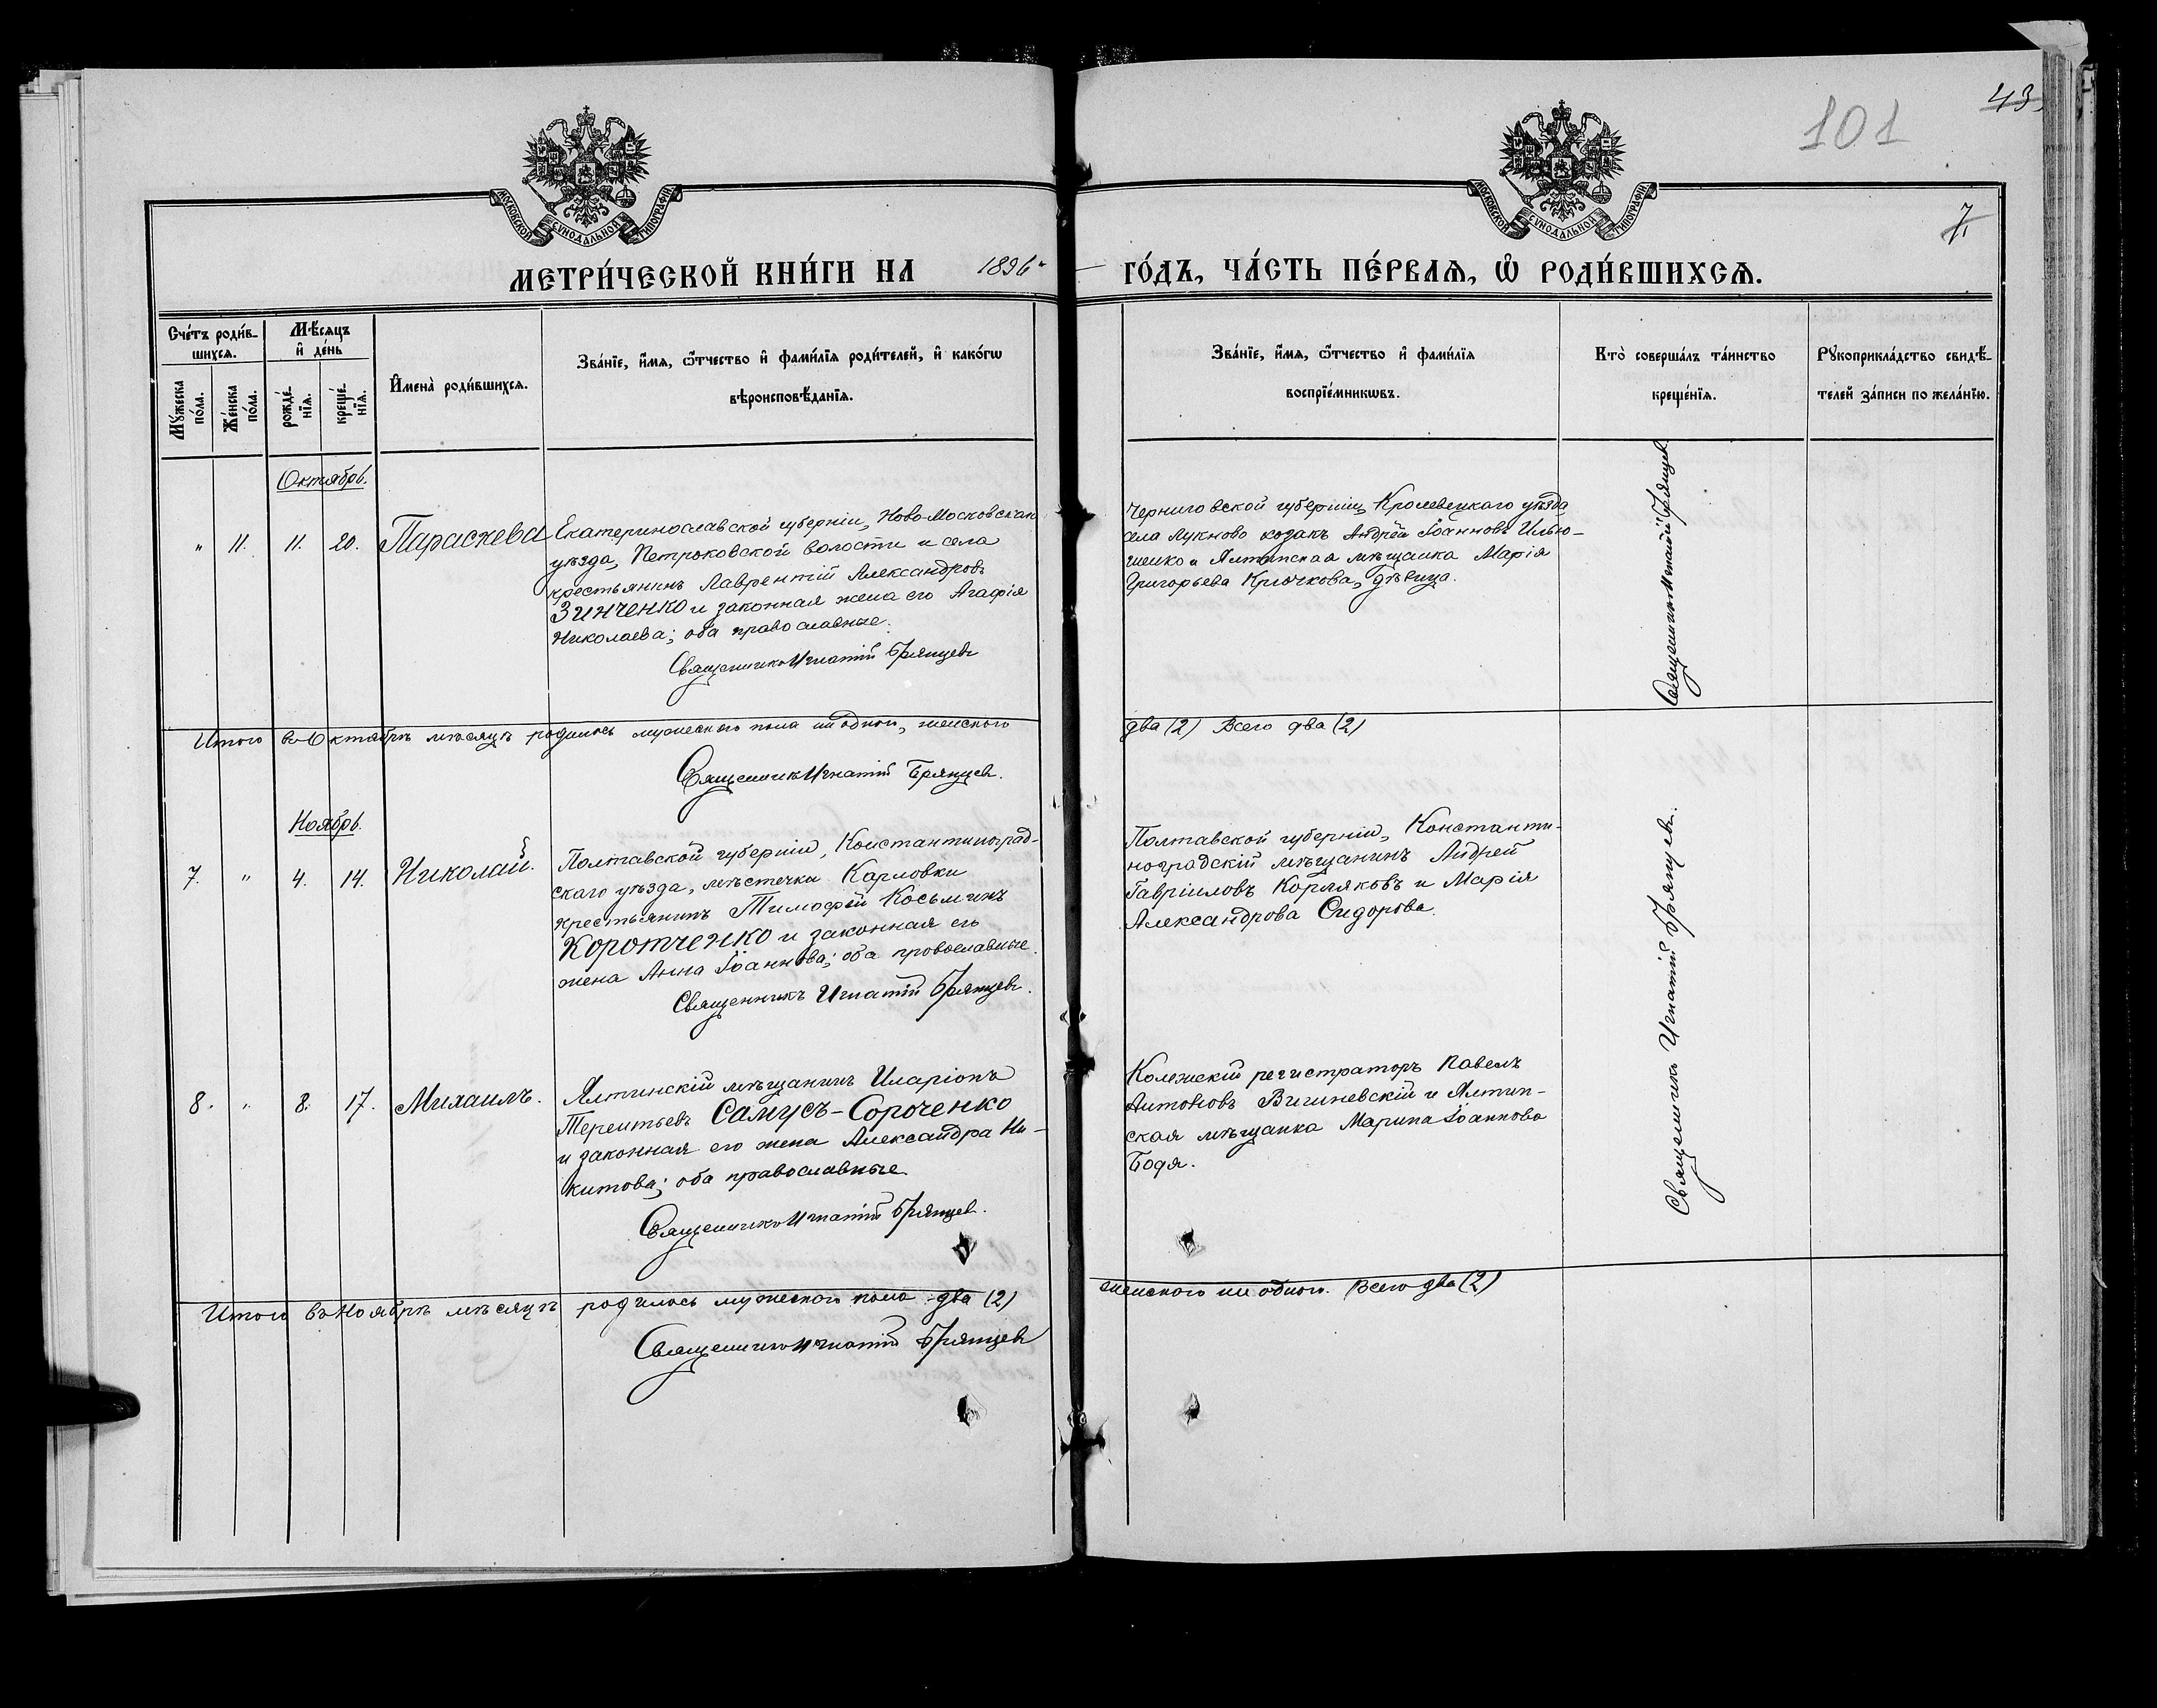 43
101
7.
МОСКОВСКОЙ СѴНОДАЛЬНОЙ ТИПОГРАФІИ
МОСКОВСКОЙ СѴНОДАЛЬНОЙ ТИПОГРАФІИ
МЕТРИ́ЧЕСКОЙ КНИ́ГИ НА 1896 ГО́ДЪ, ЧА́СТЬ ПЕ́РВАѦ, Ѡ҆ РОДИ́ВШИХСѦ.
Сче́тъ роди́в-
шихсѧ.
Мꙋ́жеска
по́ла.
Же́нска
по́ла.
Мѣ́сѧцъ
и҆ де́нь
рожде́-
нїѧ.
креще́-
нїѧ.
И҆мена̀ роди́вшихсѧ.
Зва́нїе, и҆́мѧ, ѻ҆́тчество и҆ фами́лїѧ роди́телей, и҆ како́гѡ
вѣроисповѣ́данїѧ.
Зва́нїе, и҆́мѧ, ѻ҆́тчество и҆ фами́лїѧ
воспрїе́мникѡвъ.
Кто̀ соверша́лъ та́инство
креще́нїѧ.
Рꙋкоприкла́дство свидѣ́-
телей за́писи по жела́нїю.
Октябрь.
" 11. 11. 20. Параскева
Екатеринославской губерніи, Ново-Московскаго
уѣзда, Петроковской волости и села
крестьянинъ Лаврентій Александровъ
Зинченко и законная жена его Агафія
Николаева; оба православные.
Священникъ Игнатій Брянцевъ
Черниговской губерніи, Кролевецкаго уѣзда
села Лукново козакъ Андрей Іоанновъ Илью-
шенко и Ялтинская мѣщанка Марія
Григорьева Крючкова, дѣвица.
Священникъ Игнатій Брянцевъ
Итого въ Октябрѣ мѣсяцѣ родилось мужескаго пола ни одного, женскаго
два (2) Всего два (2)
Священникъ Игнатій Брянцевъ.
Ноябрь.
7. " 4. 14. Николай.
Полтавской губерніи, Константиноград-
скаго уѣзда, мѣстечка Карловки
крестьянинъ Тимофей Косьминъ
Коротченко и законная его
жена Анна Іоаннова; оба православные.
Священникъ Игнатій Брянцевъ.
Полтавской губерніи, Константи-
ноградскій мѣщанинъ Андрей
Гавріиловъ Корляковъ и Марія
Александрова Сидорова.
8. " 8. 17. Михаилъ.
Ялтинскій мѣщанинъ Иларіонъ
Терентьевъ Самусь-Сороченко
и законная его жена Александра Ни-
китова; оба православные
Священникъ Игнатій Брянцевъ.
Колежскій регистраторъ Павелъ
Антоновъ Вишневскій и Ялтин-
ская мѣщанка Марина Іоаннова
Бодя.
Священникъ Игнатій Брянцевъ.
Итого въ Ноябрѣ мѣсяцѣ родилось мужескаго пола два (2)
женскаго ни одного. Всего два (2)
Священникъ Игнатій Брянцевъ